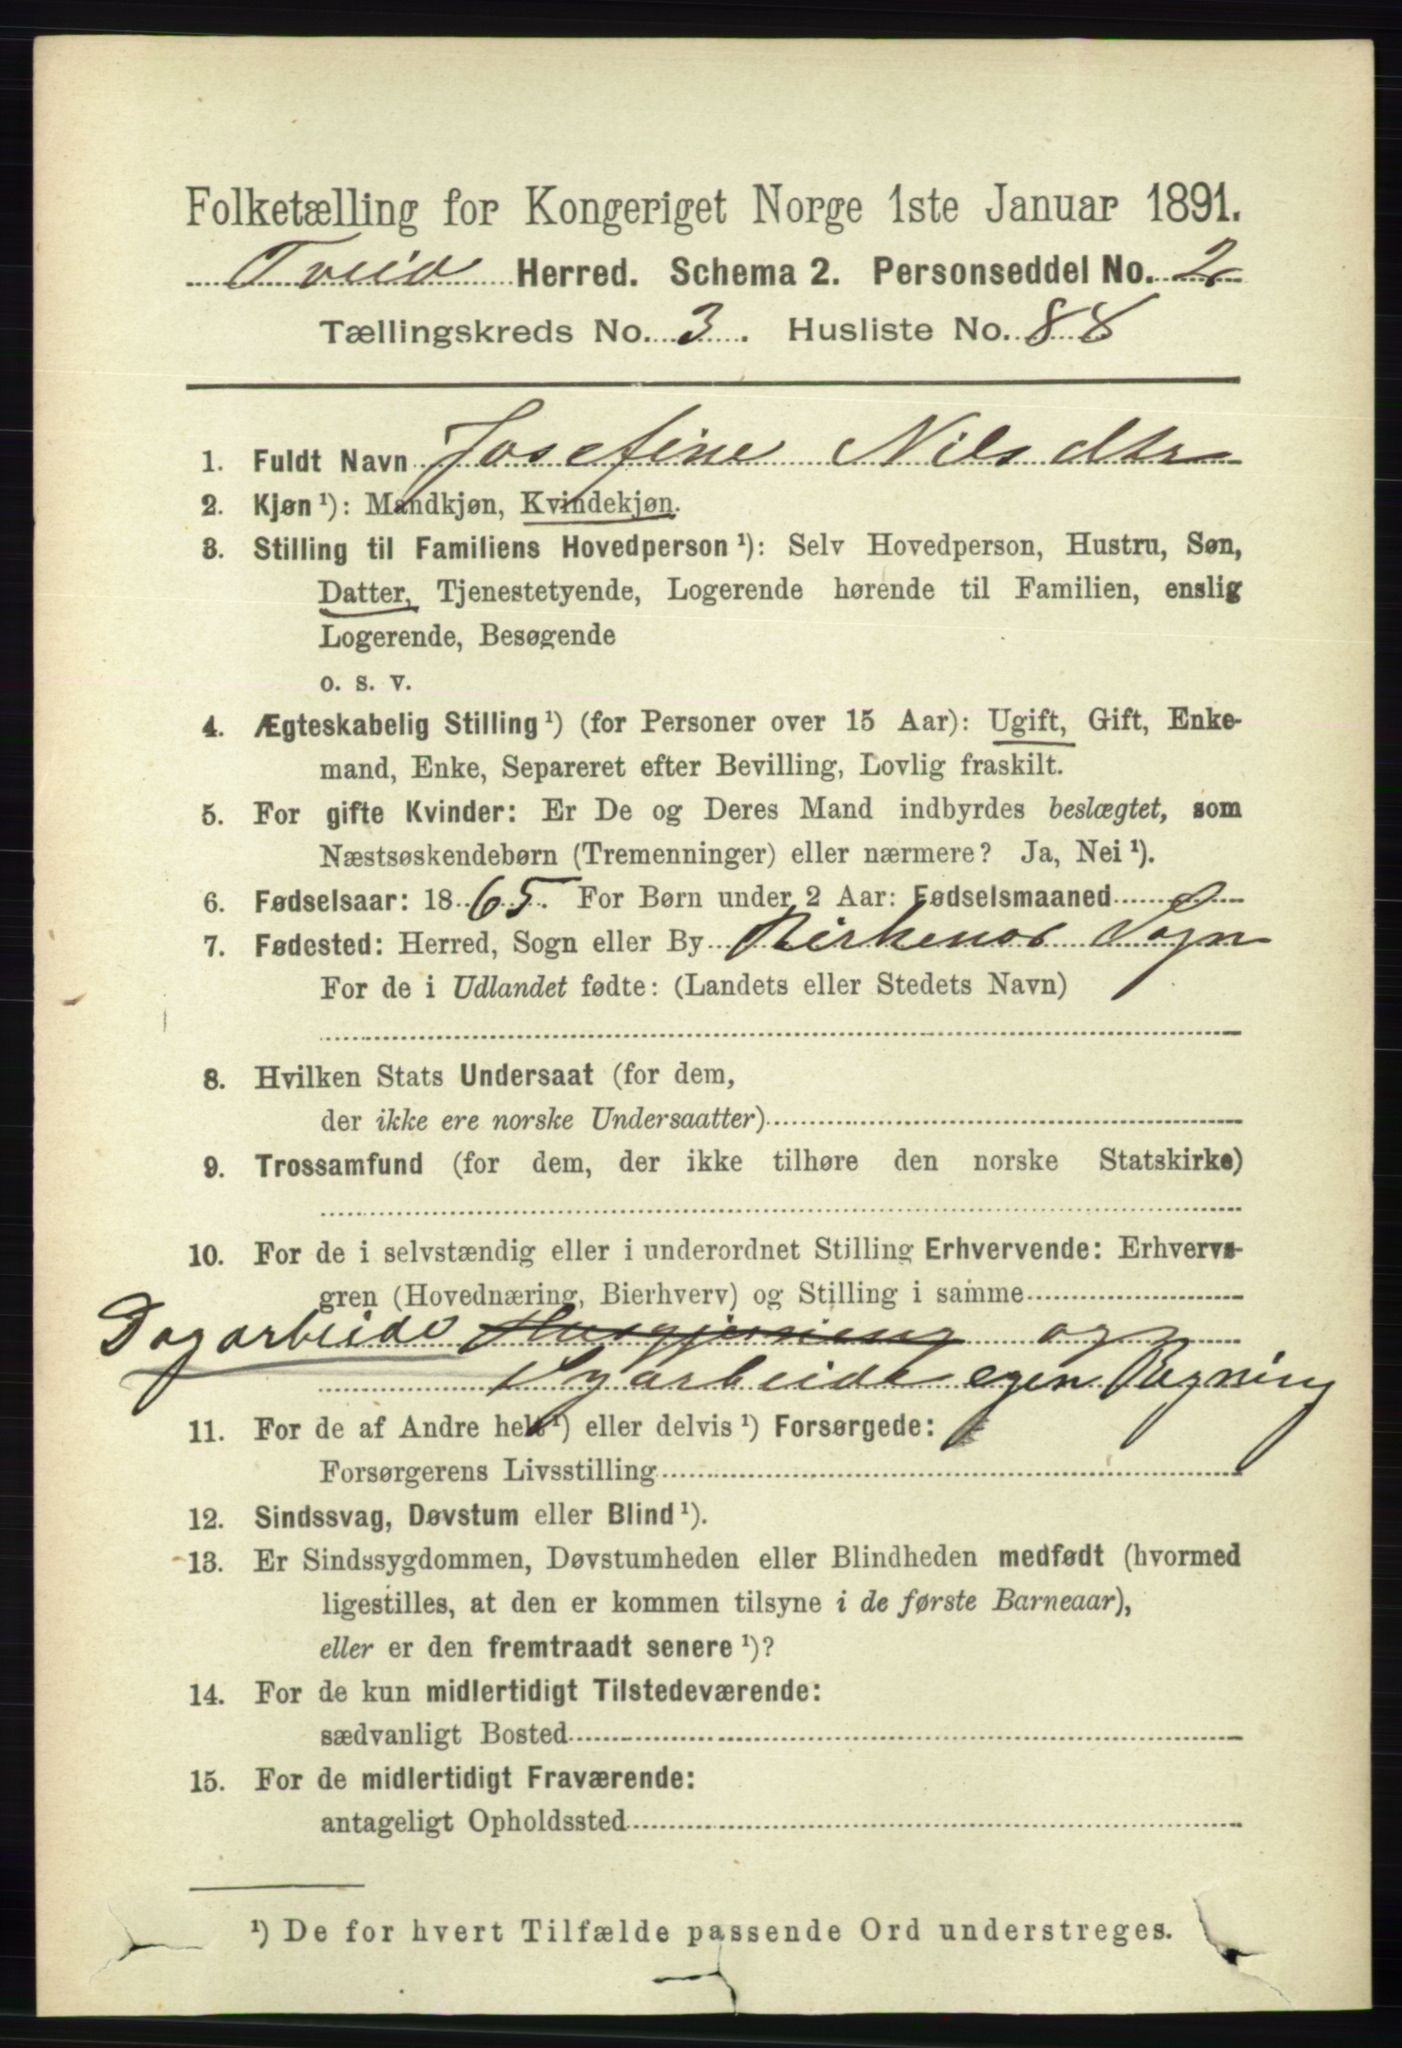 Folketælling for Kongeriget Norge 1ste Januar 1891.
Tveid Herred. Schema 2. Personseddel No. 2
Tællingskreds No. 3. Husliste No. 88
1. Fuldt Navn Josefine Nilsdtr
2. Kjøn ¹): Mandkjøn, Kvindekjøn.
3. Stilling til Familiens Hovedperson ¹): Selv Hovedperson, Hustru, Søn,
Datter, Tjenestetyende, Logerende hørende til Familien, enslig
Logerende, Besøgende
o. s. v.
4. Ægteskabelig Stilling ¹) (for Personer over 15 Aar): Ugift, Gift, Enke-
mand, Enke, Separeret efter Bevilling, Lovlig fraskilt.
5. For gifte Kvinder: Er De og Deres Mand indbyrdes beslægtet, som
Næstsøskendebørn (Tremenninger) eller nærmere? Ja, Nei ¹).
6. Fødselsaar: 1865. For Børn under 2 Aar: Fødselsmaaned
7. Fødested: Herred, Sogn eller By Birkenes Sogn
For de i Udlandet fødte: (Landets eller Stedets Navn)
8. Hvilken Stats Undersaat (for dem,
der ikke ere norske Undersaatter)
9. Trossamfund (for dem, der ikke tilhøre den norske Statskirke)
10. For de i selvstændig eller i underordnet Stilling Erhvervende: Erhvervs-
gren (Hovednæring, Bierhverv) og Stilling i samme
Dagarbeide Husgjerning og
Syarbeide egen Regning
11. For de af Andre helt ¹) eller delvis ¹) Forsørgede:
Forsørgerens Livsstilling
12. Sindssvag, Døvstum eller Blind ¹).
13. Er Sindssygdommen, Døvstumheden eller Blindheden medfødt (hvormed
ligestilles, at den er kommen tilsyne i de første Barneaar),
eller er den fremtraadt senere ¹)?
14. For de kun midlertidigt Tilstedeværende:
sædvanligt Bosted
15. For de midlertidigt Fraværende:
antageligt Opholdssted
¹) De for hvert Tilfælde passende Ord understreges.